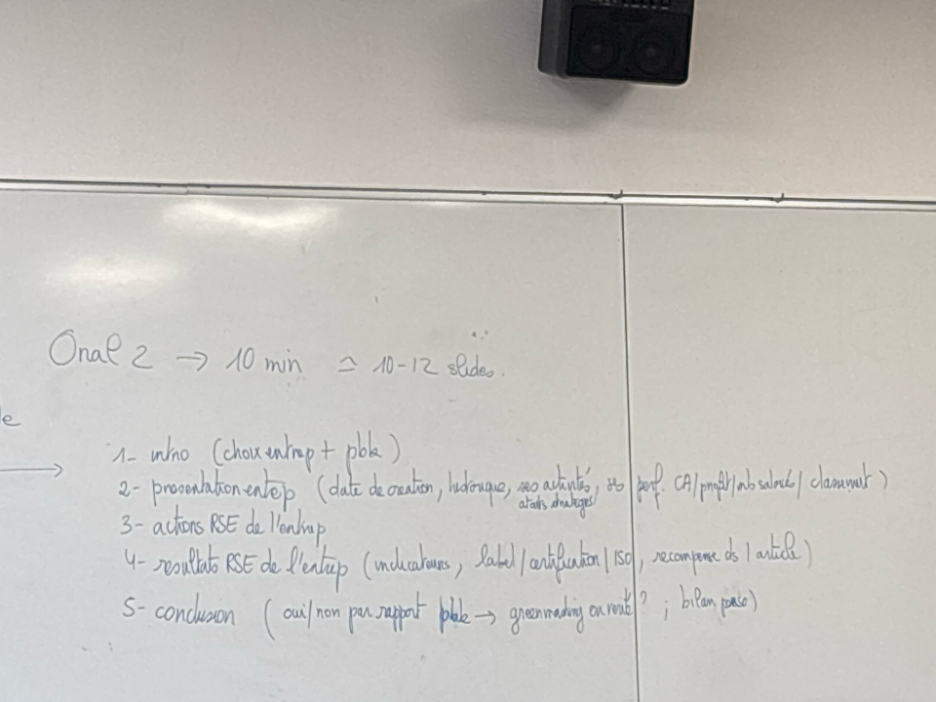 Oral 2 → 10 min ≃ 10-12 slides.
e
1- intro (choix entrep + pbk)
2- presentation entrep (date de creation, historique, ses activités, ses perf. CA/profit/nb salarié/classement)
3- actions RSE de l'entrep
4- resultats RSE de l'entrep (indicateurs, label/certification/ISO, recompense ds l article)
5- conclusion (oui/non par rapport pbk → greenwashing ou réalité? ; bilan perso)